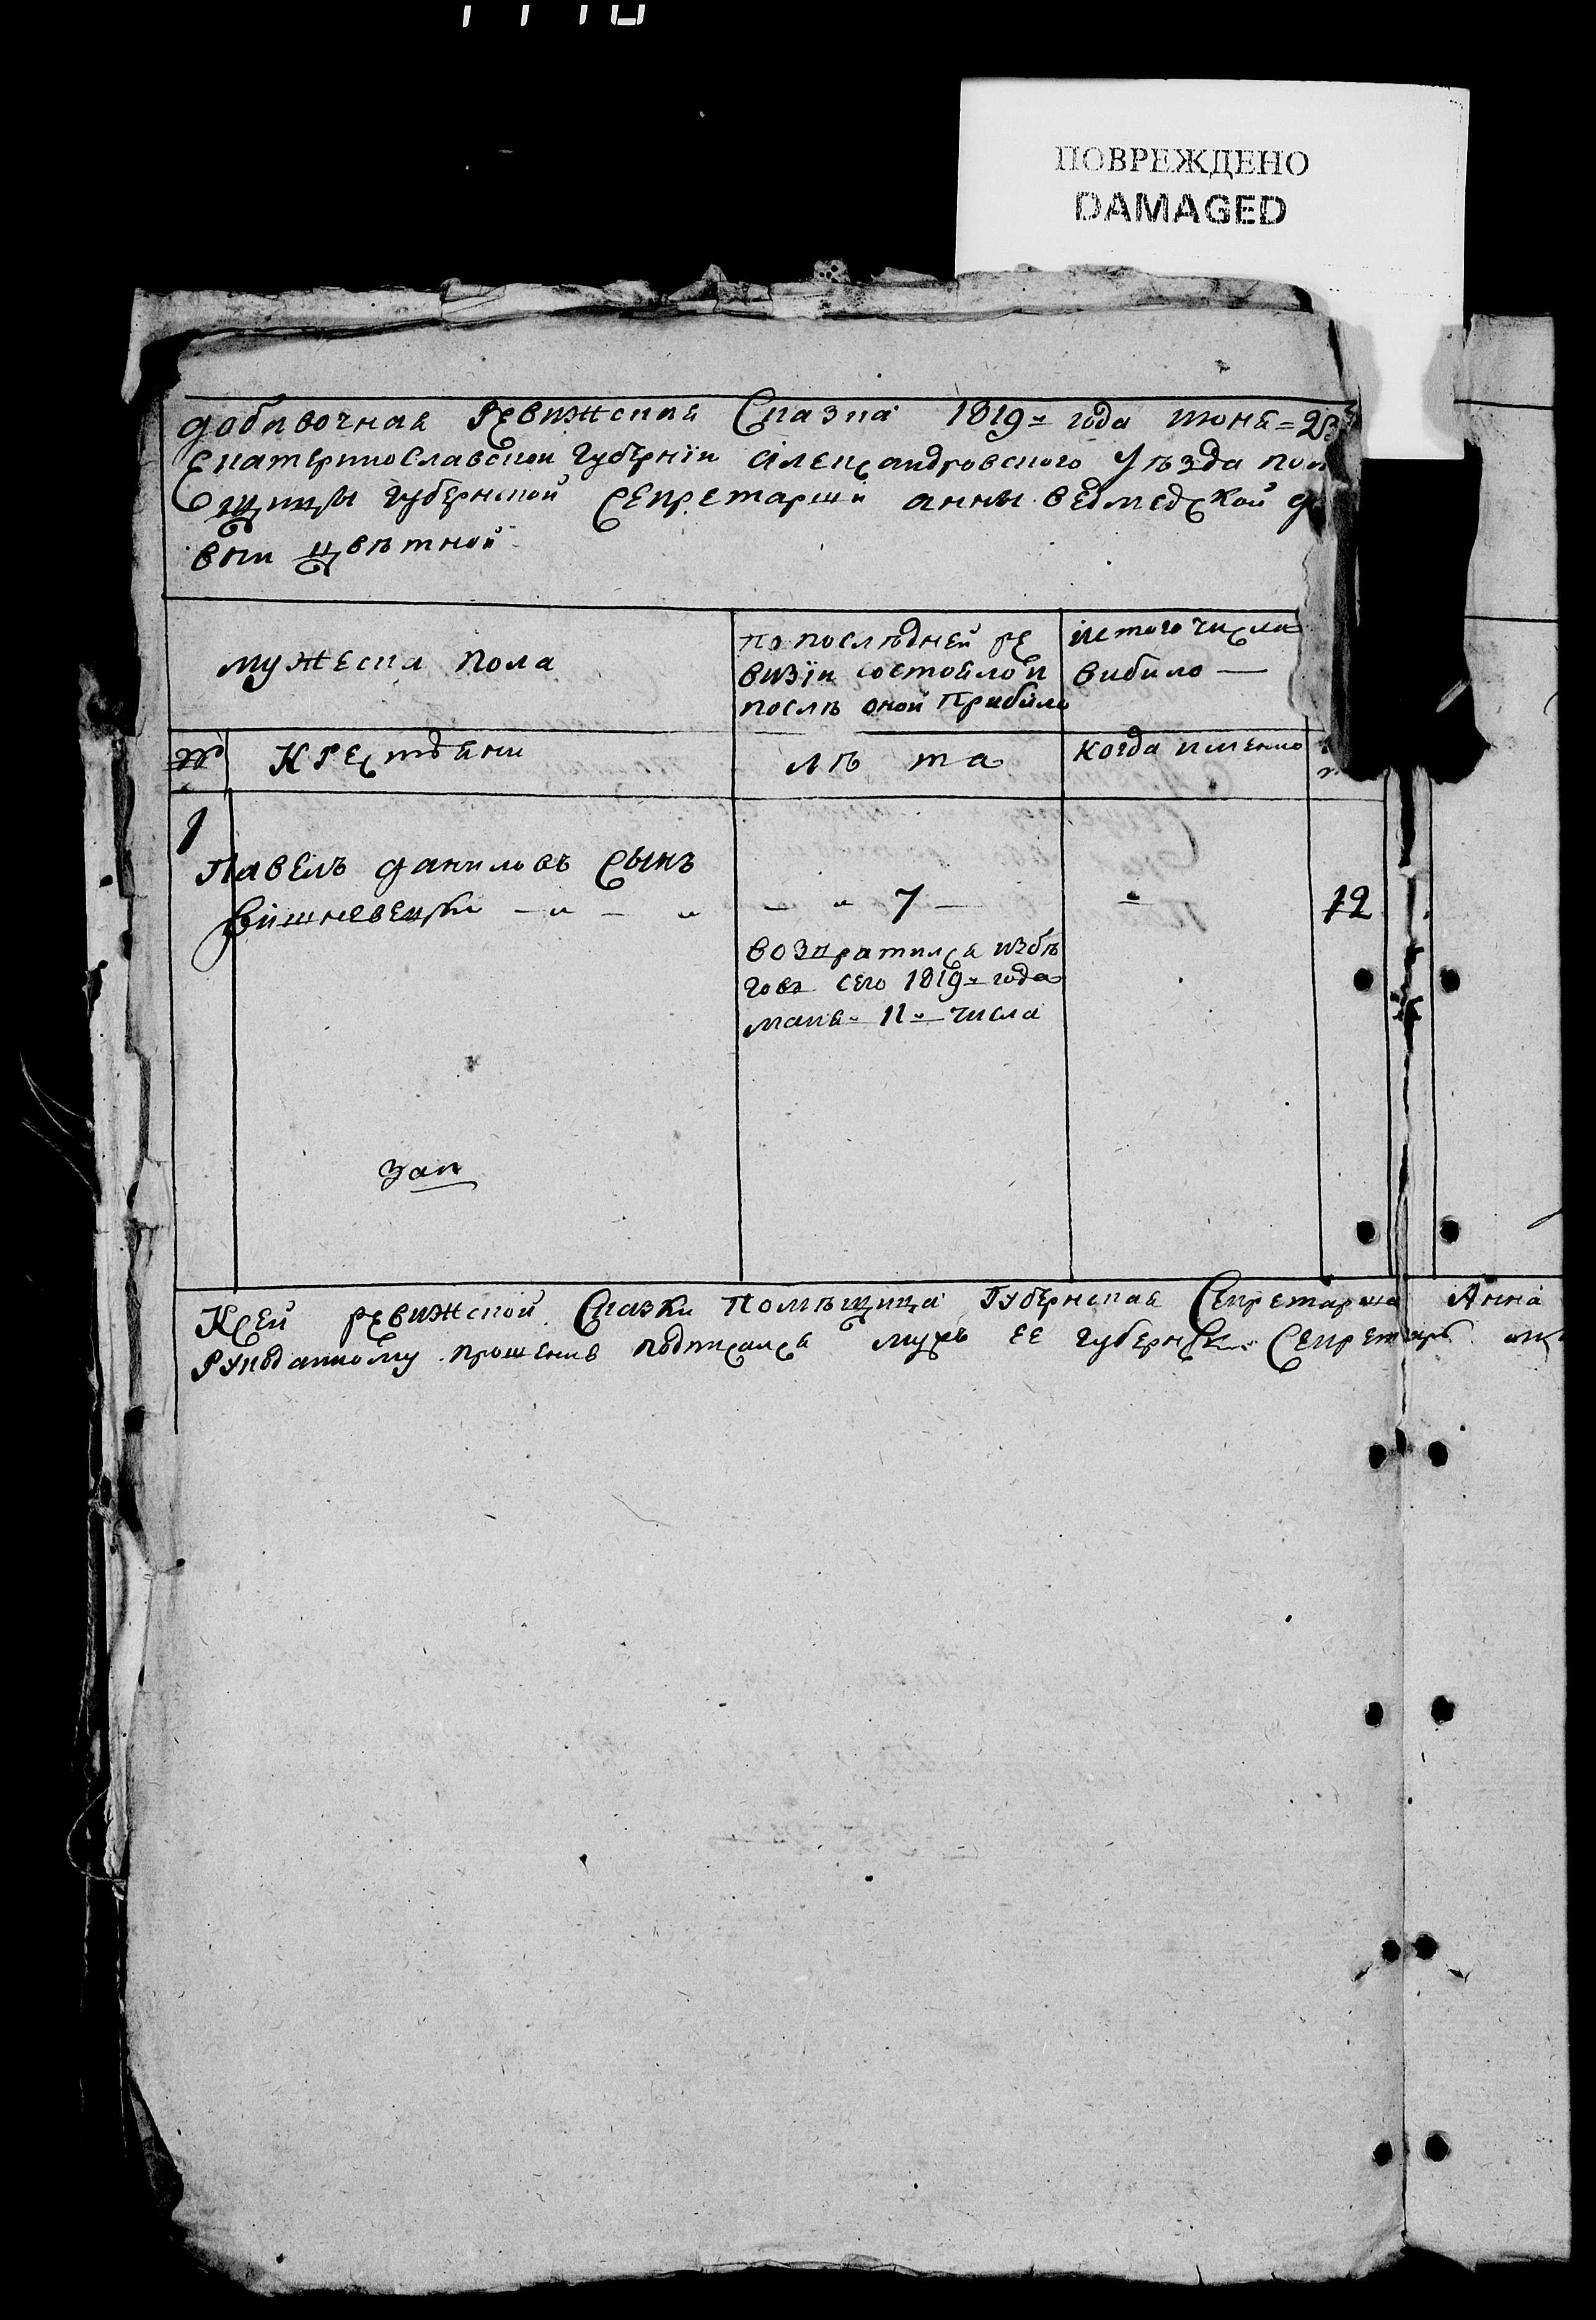 ПОВРЕЖДЕНО
DAMAGED
добавочная Ревижская Сказка 1819го года июня
Екатеринославской Губернїи Александровского Уѣзда пом
щицы губернской секретарши анны ведмедской де
вни цвѣтной
мужеска пола
по послѣдней ре
визїи состояло и
послѣ оной прибило
ис того числа
вибило —
№
Крестьяни
лѣ та
когда имянно
1
Павелъ даниловъ сынъ
Вишневецки
7
12
возвратился избѣ
говъ сего 1819го года
мая 11го числа
зап
Ксей ревижской Сказки помѣщица Губернская Секретарша Анна
Рукоданному прошению подписался мужъ ее губернски Секретарь